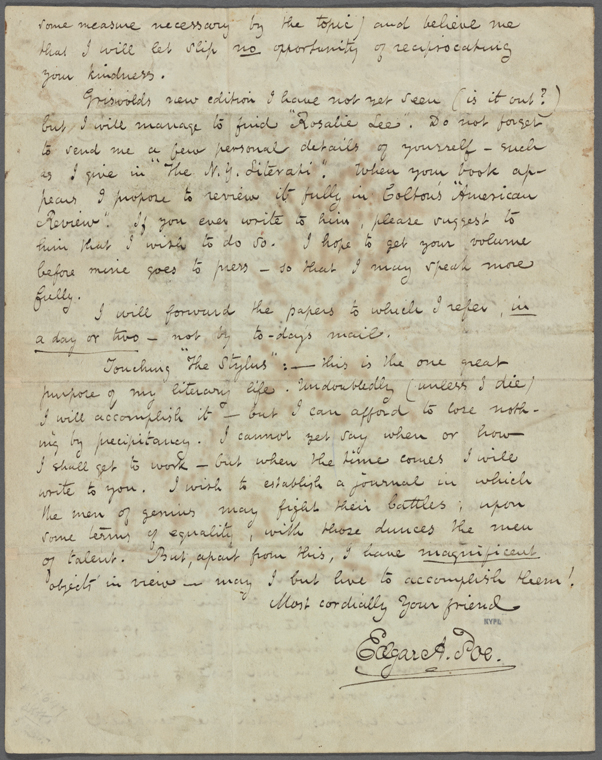 some measure necessary by the topic) and believe me
that I will let slip no opportunity of reciprocating
your kindness.
Griswold's new edition I have not yet seen (is it out?)
but I will manage to find "Rosalie Lee". Do not forget
to send me a few personal details of yourself — such
as I give in "The N.Y. Literati". When your book ap-
pears I propose to review it fully in Colton's "American
Review". If you ever write to him, please suggest to
him that I wish to do so. I hope to get your volume
before mine goes to press — so that I may speak more
fully.
I will forward the papers to which I refer, in
a day or two — not by to-days mail.
Touching "The Stylus": — this is the one great
purpose of my literary life. Undoubtedly (unless I die)
I will accomplish it — but I can afford to lose noth-
ing by precipitancy. I cannot yet say when or how
I shall get to work — but when the time comes I will
write to you. I wish to establish a journal in which
the men of genius may fight their battles; upon
some terms of equality, with those dunces the men
of talent. But, apart from this, I have magnificent
objects in view — may I but live to accomplish them!
Most cordially Your friend
NYPL
Edgar A. Poe.